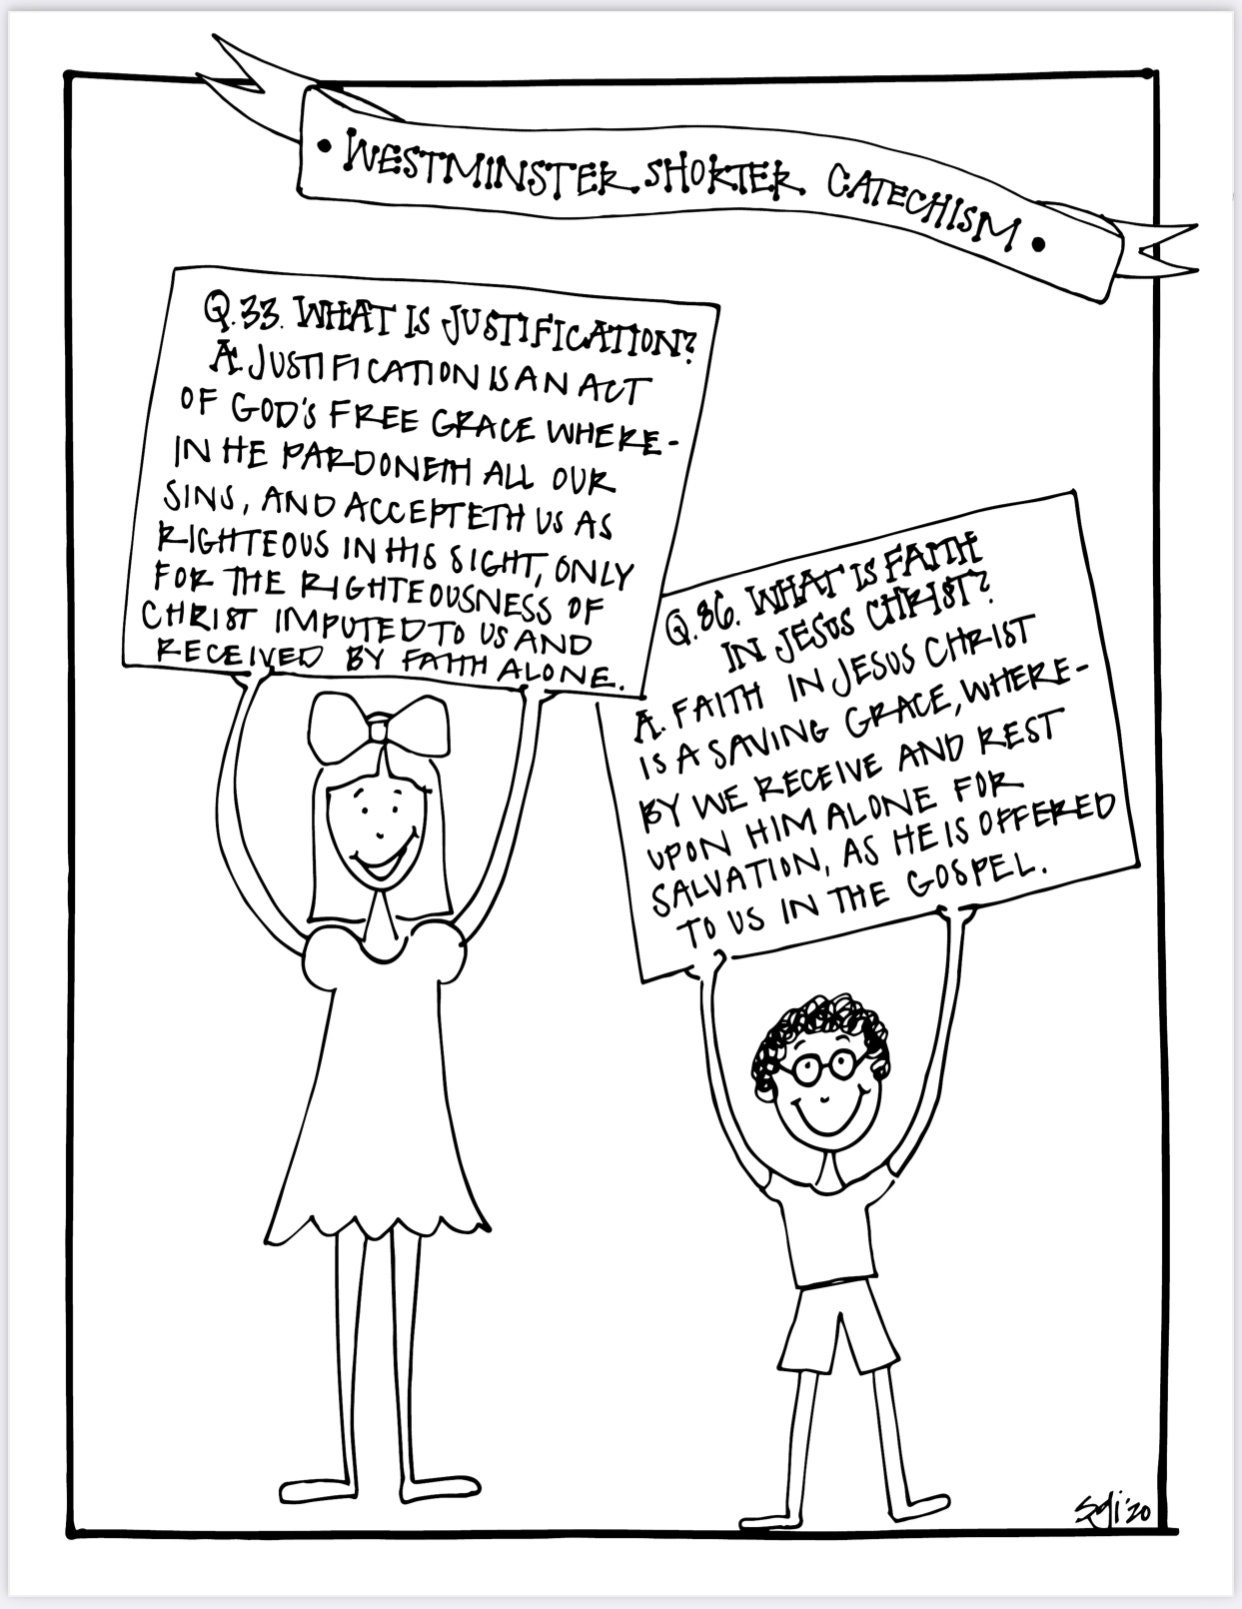 • WESTMINSTER SHORTER CATECHISM •
Q.33. WHAT IS JUSTIFICATION?
A. JUSTIFICATION IS AN ACT
OF GOD'S FREE GRACE WHERE-
IN HE PARDONETH ALL OUR
SINS, AND ACCEPTETH US AS
RIGHTEOUS IN HIS SIGHT, ONLY
FOR THE RIGHTEOUSNESS OF
CHRIST IMPUTED TO US AND
RECEIVED BY FAITH ALONE.
Q.86. WHAT IS FAITH
IN JESUS CHRIST?
A. FAITH IN JESUS CHRIST
IS A SAVING GRACE, WHERE-
BY WE RECEIVE AND REST
UPON HIM ALONE FOR
SALVATION, AS HE IS OFFERED
TO US IN THE GOSPEL.
'20